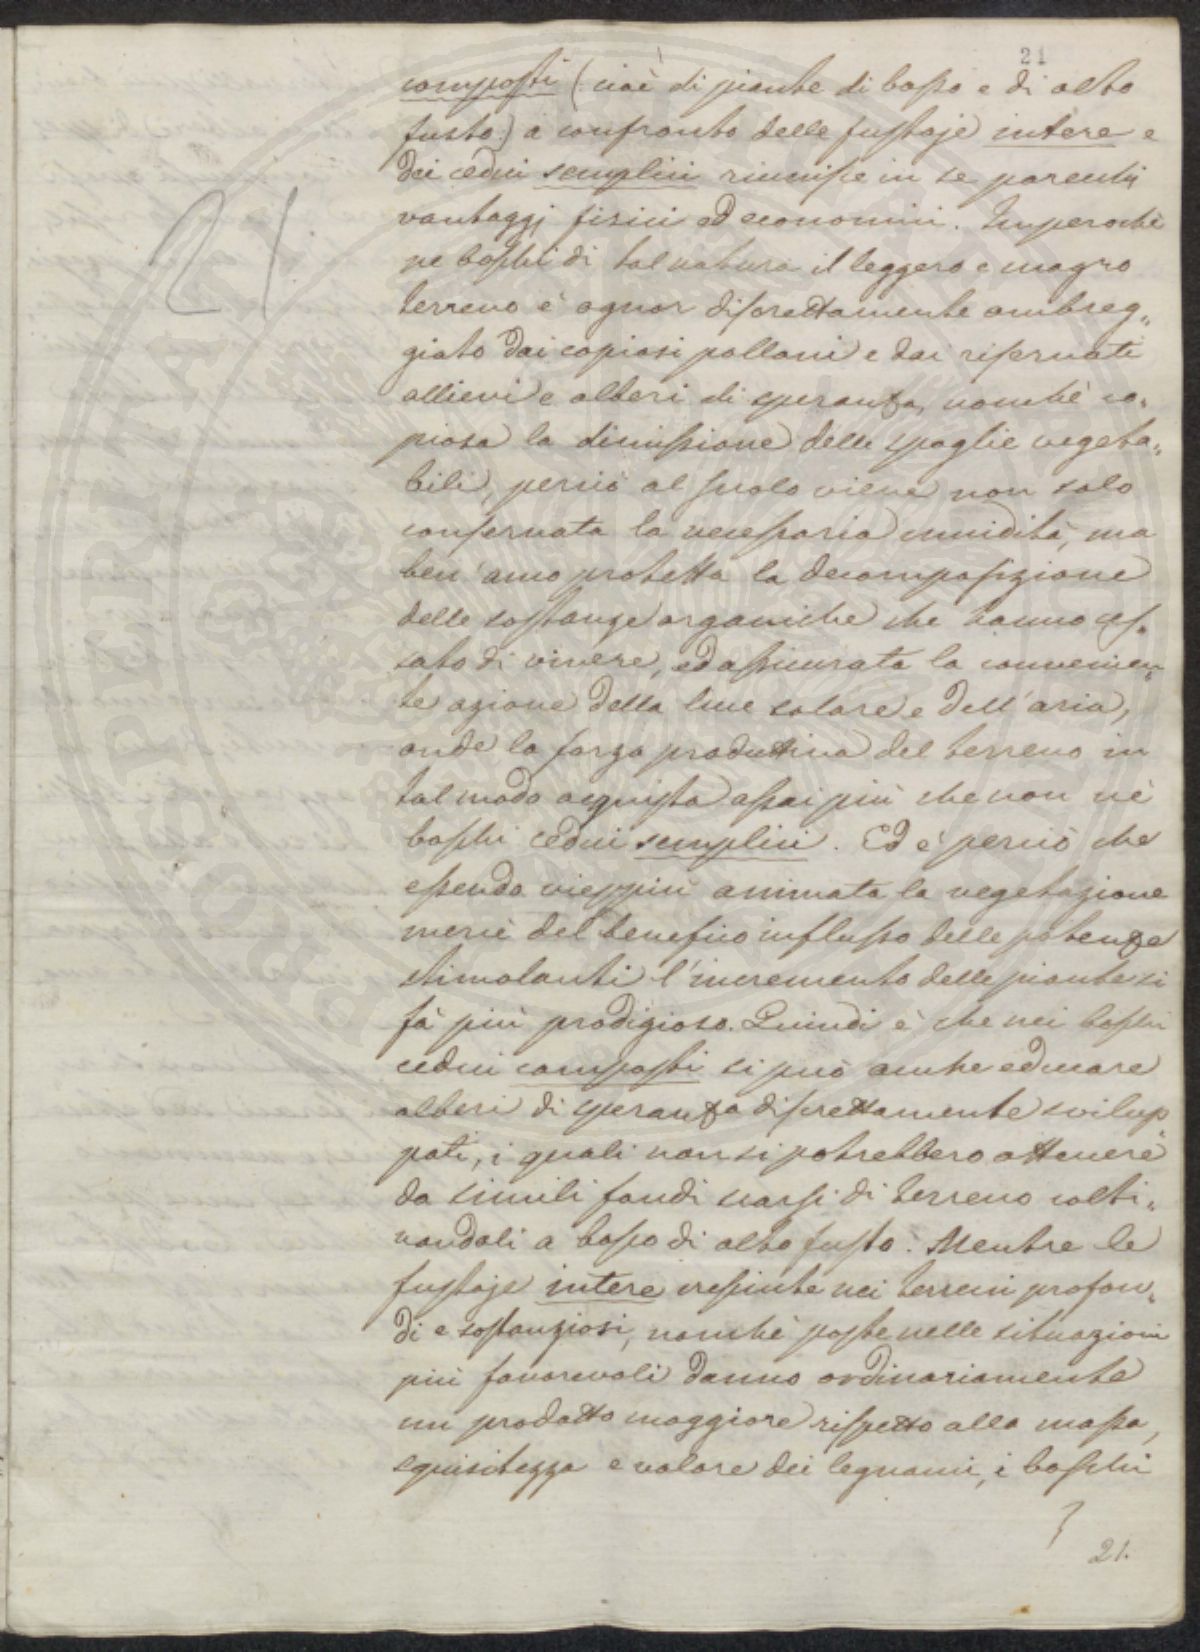 21
composti (cioè di piante di basso e di alto
fusto) a confronto delle fustaje intere e
dei cedui semplici riunisce in se parecchi
vantaggj fisici ed economici. Imperochè
ne boschi di tal natura il leggero e magro
terreno è ognor discrettamente ombreg„
giato dai copiosi polloni e dai riservati
allievi e alberi di speranza, nonchè co„
piosa la dimissione delle spoglie vegeta„
bili, perciò al suolo viene non solo
conservata la necessaria umidità, ma
ben' anco protetta la decomposizione
delle sostanze organiche che hanno ces„
sato di vivere, ed assicurata la convenien„
te azione della luce solare e dell'aria,
onde la forza produttiva del terreno in
tal modo acquista assai più che non nè
boschi cedui semplici. Ed è perciò che
essendo vieppiù animata la vegetazione
mercè del benefico influsso delle potenze
stimolanti l'incremento delle piante si
fà più prodigioso. Quindi è che nei boschi
cedui composti si può anche educare
alberi di speranza discrettamente svilup„
pati, i quali non si potrebbero ottenere
da simili fondi scarsi di terreno colti„
vandoli a bosco di alto fusto. Mentre le
fustaje intere cresciute nei terreni profon„
di e sostanziosi, nonchè poste nelle situazioni
più favorevoli danno ordinariamente
un prodotto maggiore rispetto alla massa,
squisitezza e valore dei legnami, i boschi
21.
21
PROSPERITATI